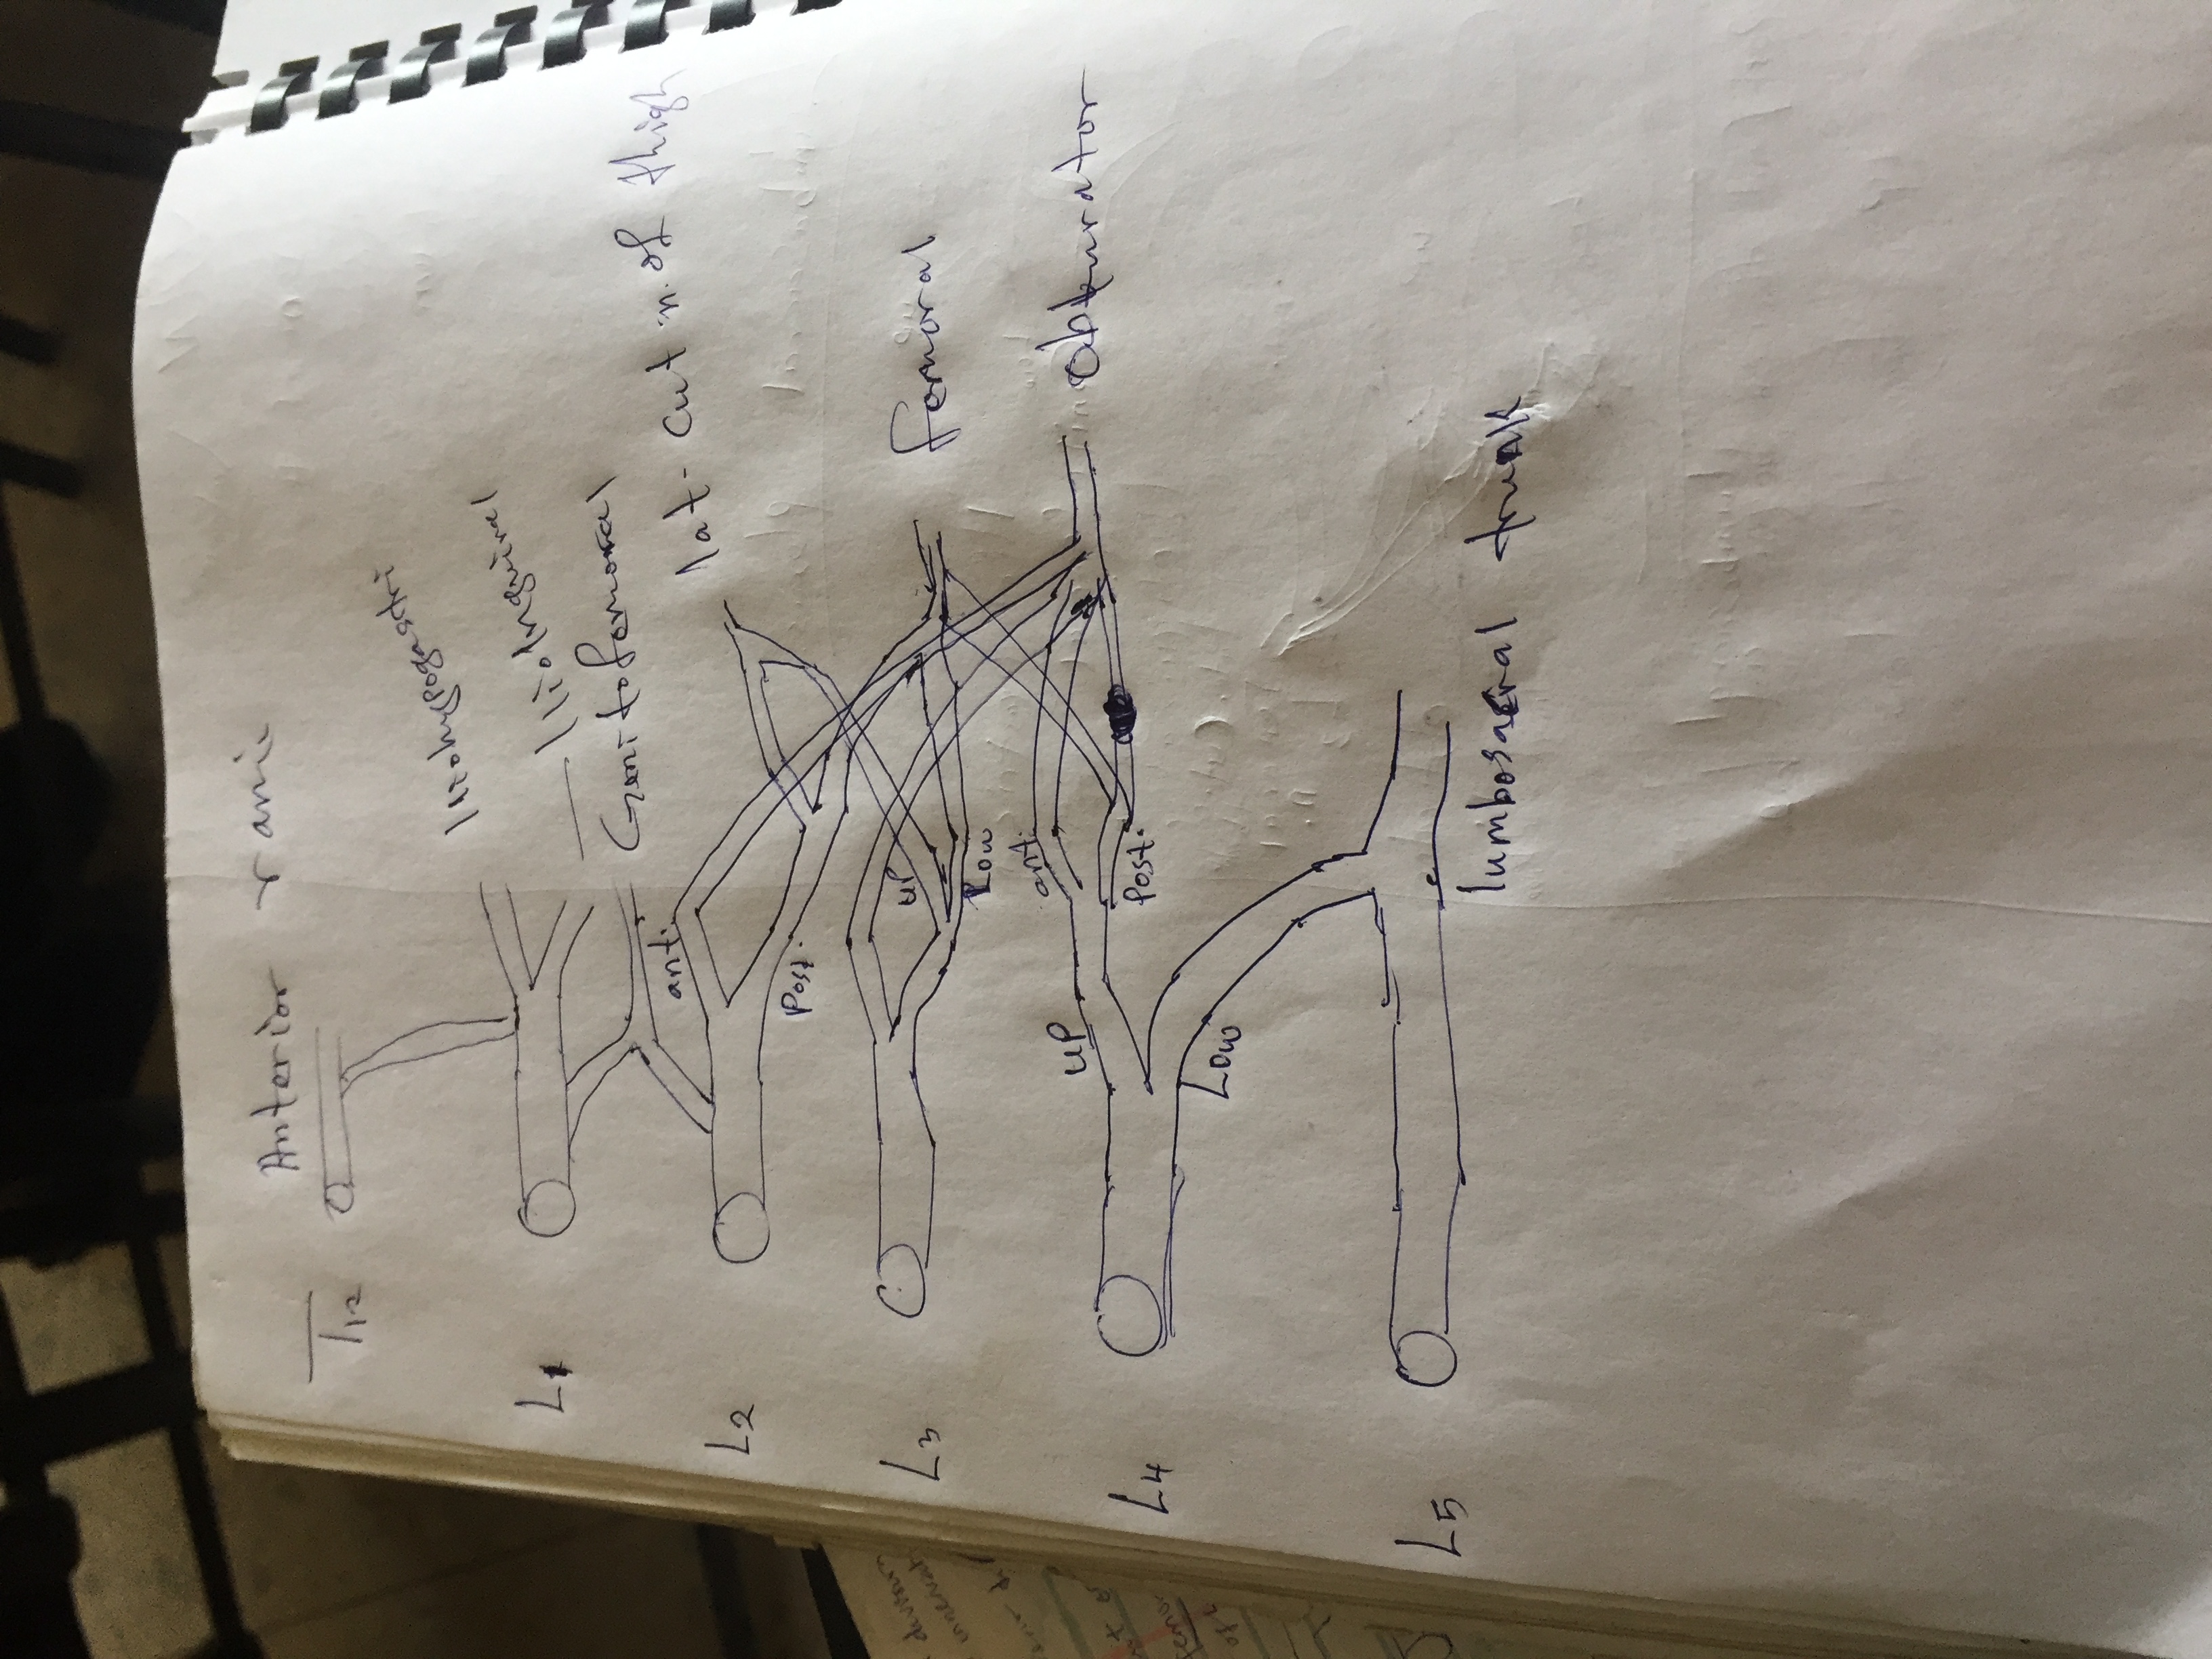 Anterior rami
T12
Iliohypogastri
L1
IlioInguinal
Genitofemoral
ant.
lat. cut n. of thigh
L2
Post.
L3
up
femoral
Low
ant.
up
obturator
L4
Post.
Low
L5
lumbosacral trunk